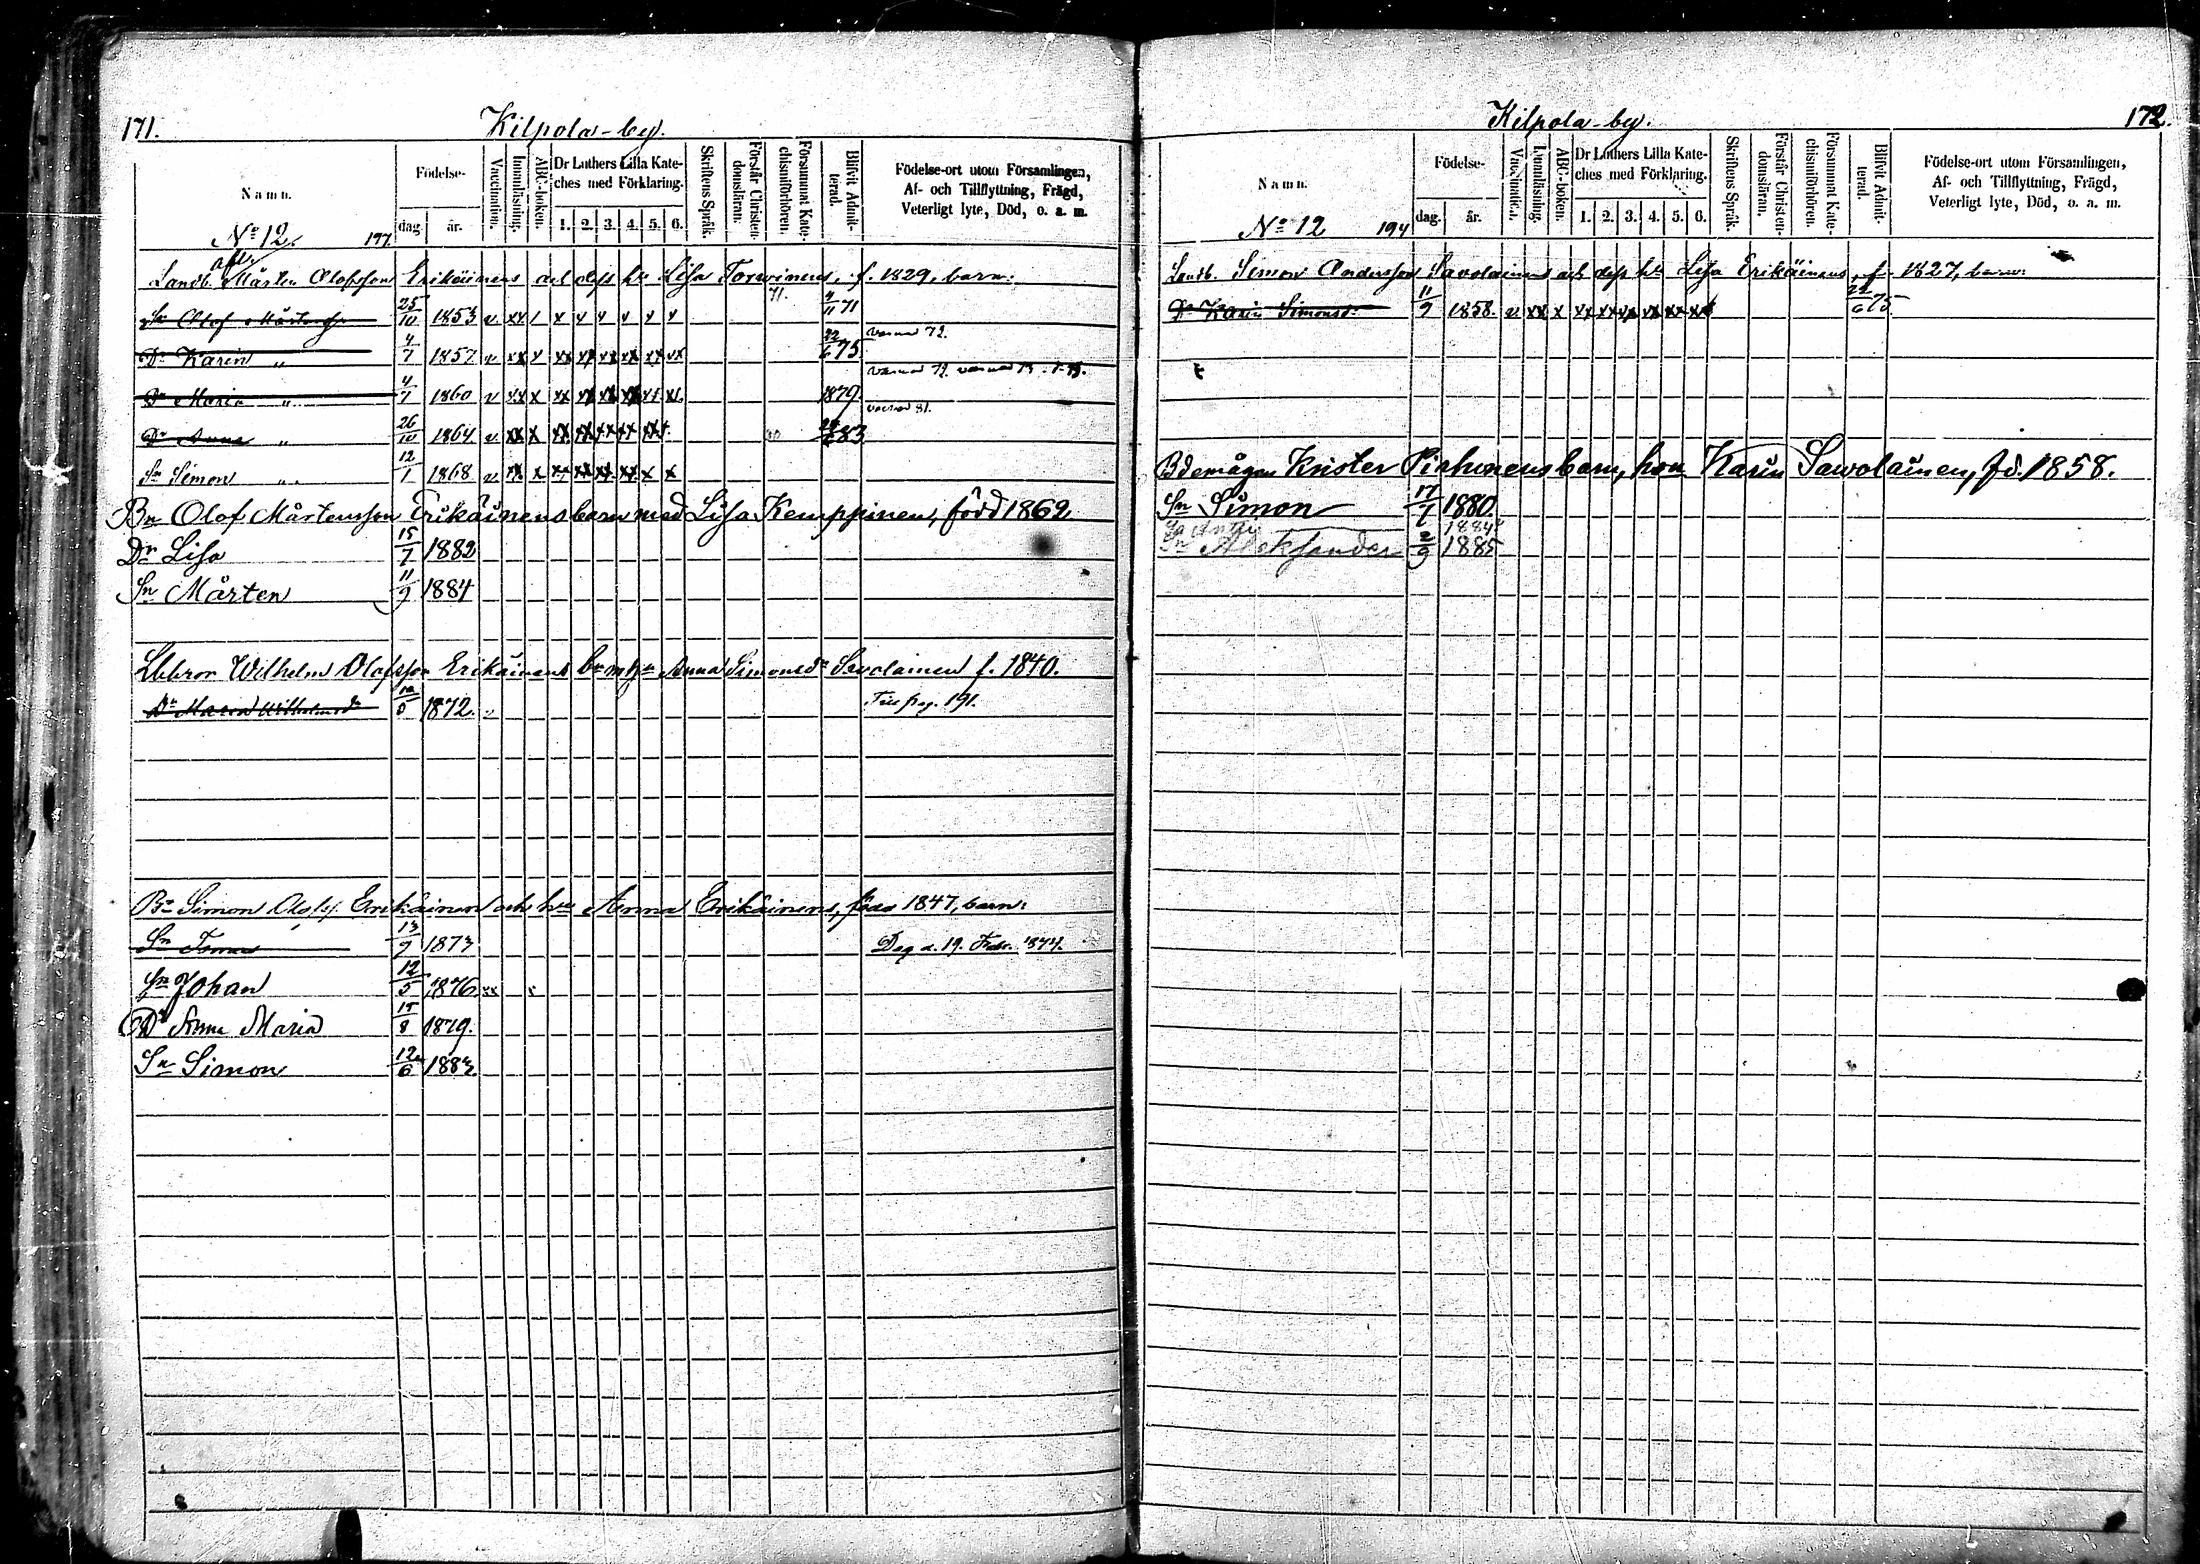 171.
Kilpola-by.
Namn.
Födelse-
dag.
år.
Vaccination.
Innanläsning.
ABC-boken.
Dr Luthers Lilla Kate-
ches med Förklaring.
1. 2. 3. 4. 5. 6.
Skriftens Språk.
Förstår Christen-
domsläran.
Försummat Kate-
chismiförhören.
Blifvit Admit-
terad.
Födelse-ort utom Församlingen,
Af- och Tillflyttning, Frägd,
Veterligt lyte, Död, o. a. m.
No 12.
Landb. Mårten Olofsson Erikäinens och dess h. Lisa Torwinens, f. 1829, barn:
Sn Olof Mårtenss. 25/10 1853 v xx 71. 4/11 71
Dr Karin " 4/7 1857 v xx 22/6 75
Dr Maria " 4/7 1860 v xx x 1879.
Dr Anna " 26/10 1864 v xx x 83
Sn Simon " 12/1 1868 v xx x
Bn Olof Mårtensson Erikäinens barn med Lisa Kemppinen, född 1862
Dr Lisa 15/7 1882
Sn Mårten 11/9 1884
Wilhelm Olofsson Erikäinens Anna Simonsdr Savolainen f. 1840.
Dr Maria Wilhelmsdr 1872. v pag. 191.
Bn Simon Olofss. Erikäinen och hu Anna Erikäinens, född 1847, barn:
Sn 13/9 1873 Dog d. 19. Febr. 1874.
Sn Johan 12/5 1876
Dr Anna Maria 15/8 1879.
Sn Simon 12/6 1883
Kilpola-by.
172.
Namn.
Födelse-
dag.
år.
Vaccination.
Innanläsning.
ABC-boken.
Dr Luthers Lilla Kate-
ches med Förklaring.
1. 2. 3. 4. 5. 6.
Skriftens Språk.
Förstår Christen-
domsläran.
Försummat Kate-
chismiförhören.
Blifvit Admit-
terad.
Födelse-ort utom Församlingen,
Af- och Tillflyttning, Frägd,
Veterligt lyte, Död, o. a. m.
No 12 194
Landb. Simon Andersson Savolainens och dess h. Lisa Erikäinens, f. 1827, barn:
Dr Karin Simonsd. 11/9 1858. v xx x 22/6 75.
Bdemågen Krister barn, hon Karin Sawolainen, fd. 1858.
Sn Simon 17/7 1880
Antti 1884
Sn Aleksander 2/9 1885